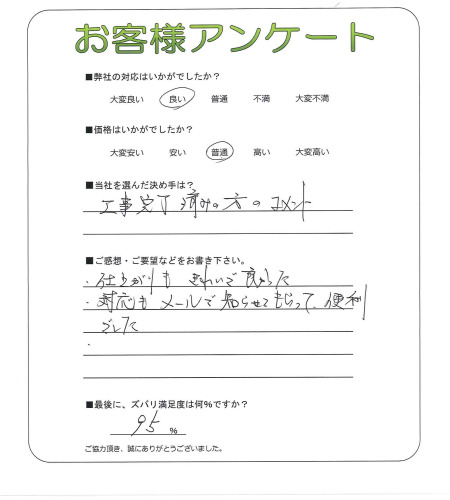 お客様アンケート
■弊社の対応はいかがでしたか？
大変良い 良い 普通 不満 大変不満
■価格はいかがでしたか？
大変安い 安い 普通 高い 大変高い
■当社を選んだ決め手は？
工事完了済みの方のコメント
■ご感想・ご要望などをお書き下さい。
・仕上がりも きれいで良かった
・対応もメールで知らせてもらって、便利
でした
・
■最後に、ズバリ満足度は何%ですか？
95 %
ご協力頂き、誠にありがとうございました。